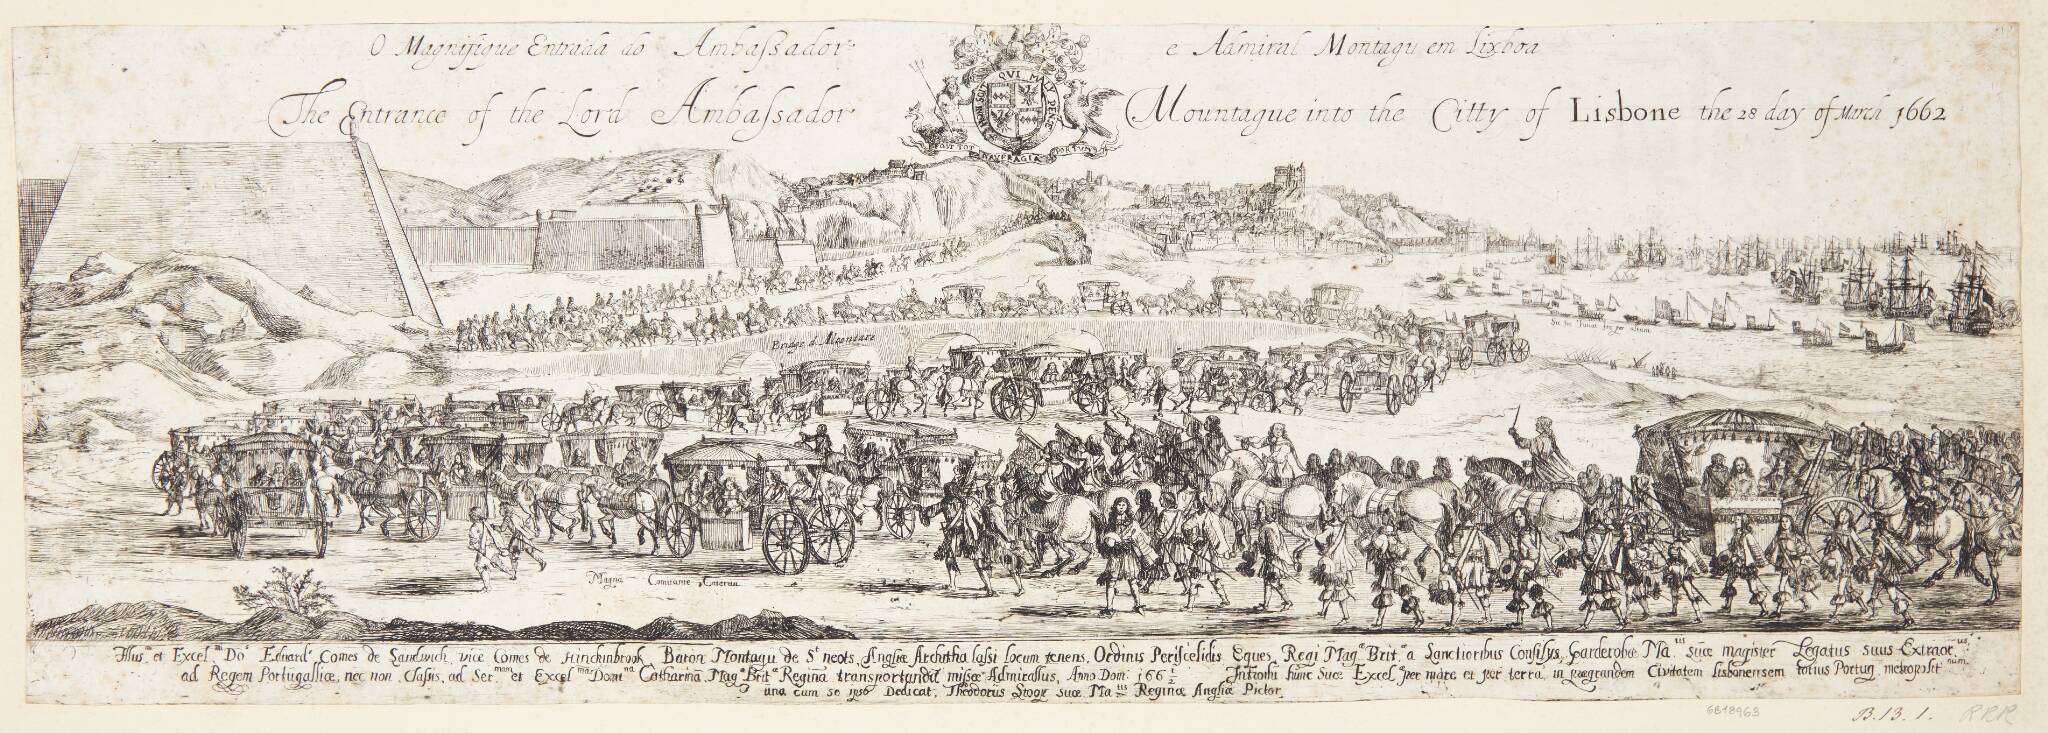 O Magnifique Entrada do Ambaſsador e Admiral Montagu em Lixboa
The Entrance of the Lord Ambaſsador Mountague into the Citty of Lisbone the 28 day of March 1662
QUI MAL Y PENSE HONI SOIT
POST TOT NAUFRAGIA PORTUM
Bridge d'Alcantare
Magna Comitante Caterua
Illus.m et Excel.m Do.o Eduard.o Comes de Sandwich, vice Comes de Hinckinbrook, Baron Montagu de S.t neots, Angliæ Archithalassi locum tenens, Ordinis Periscelidis Eques, Regi Mag. Brit. a Sanctioribus Consilys, Garderobæ Ma.tis suæ magister Legatus suus Extraor.
ad Regem Portugalliæ, nec non Classis, ad Ser.mam et Excel.ma Domi.na Catharina Mag. Brit. Regina transportandā missæ Admirallus, Anno Dom: 166 1/2 Introitū hunc Suæ Excel.æ per mare et per terra, in prægrandem Civitatem Lisbonensem totius Portug. metroposit.num
una cum se ipso Dedicat, Theodorus Stoop suæ Ma.tis Reginæ Angliæ Pictor.
6818963
B.13.1.
RRR